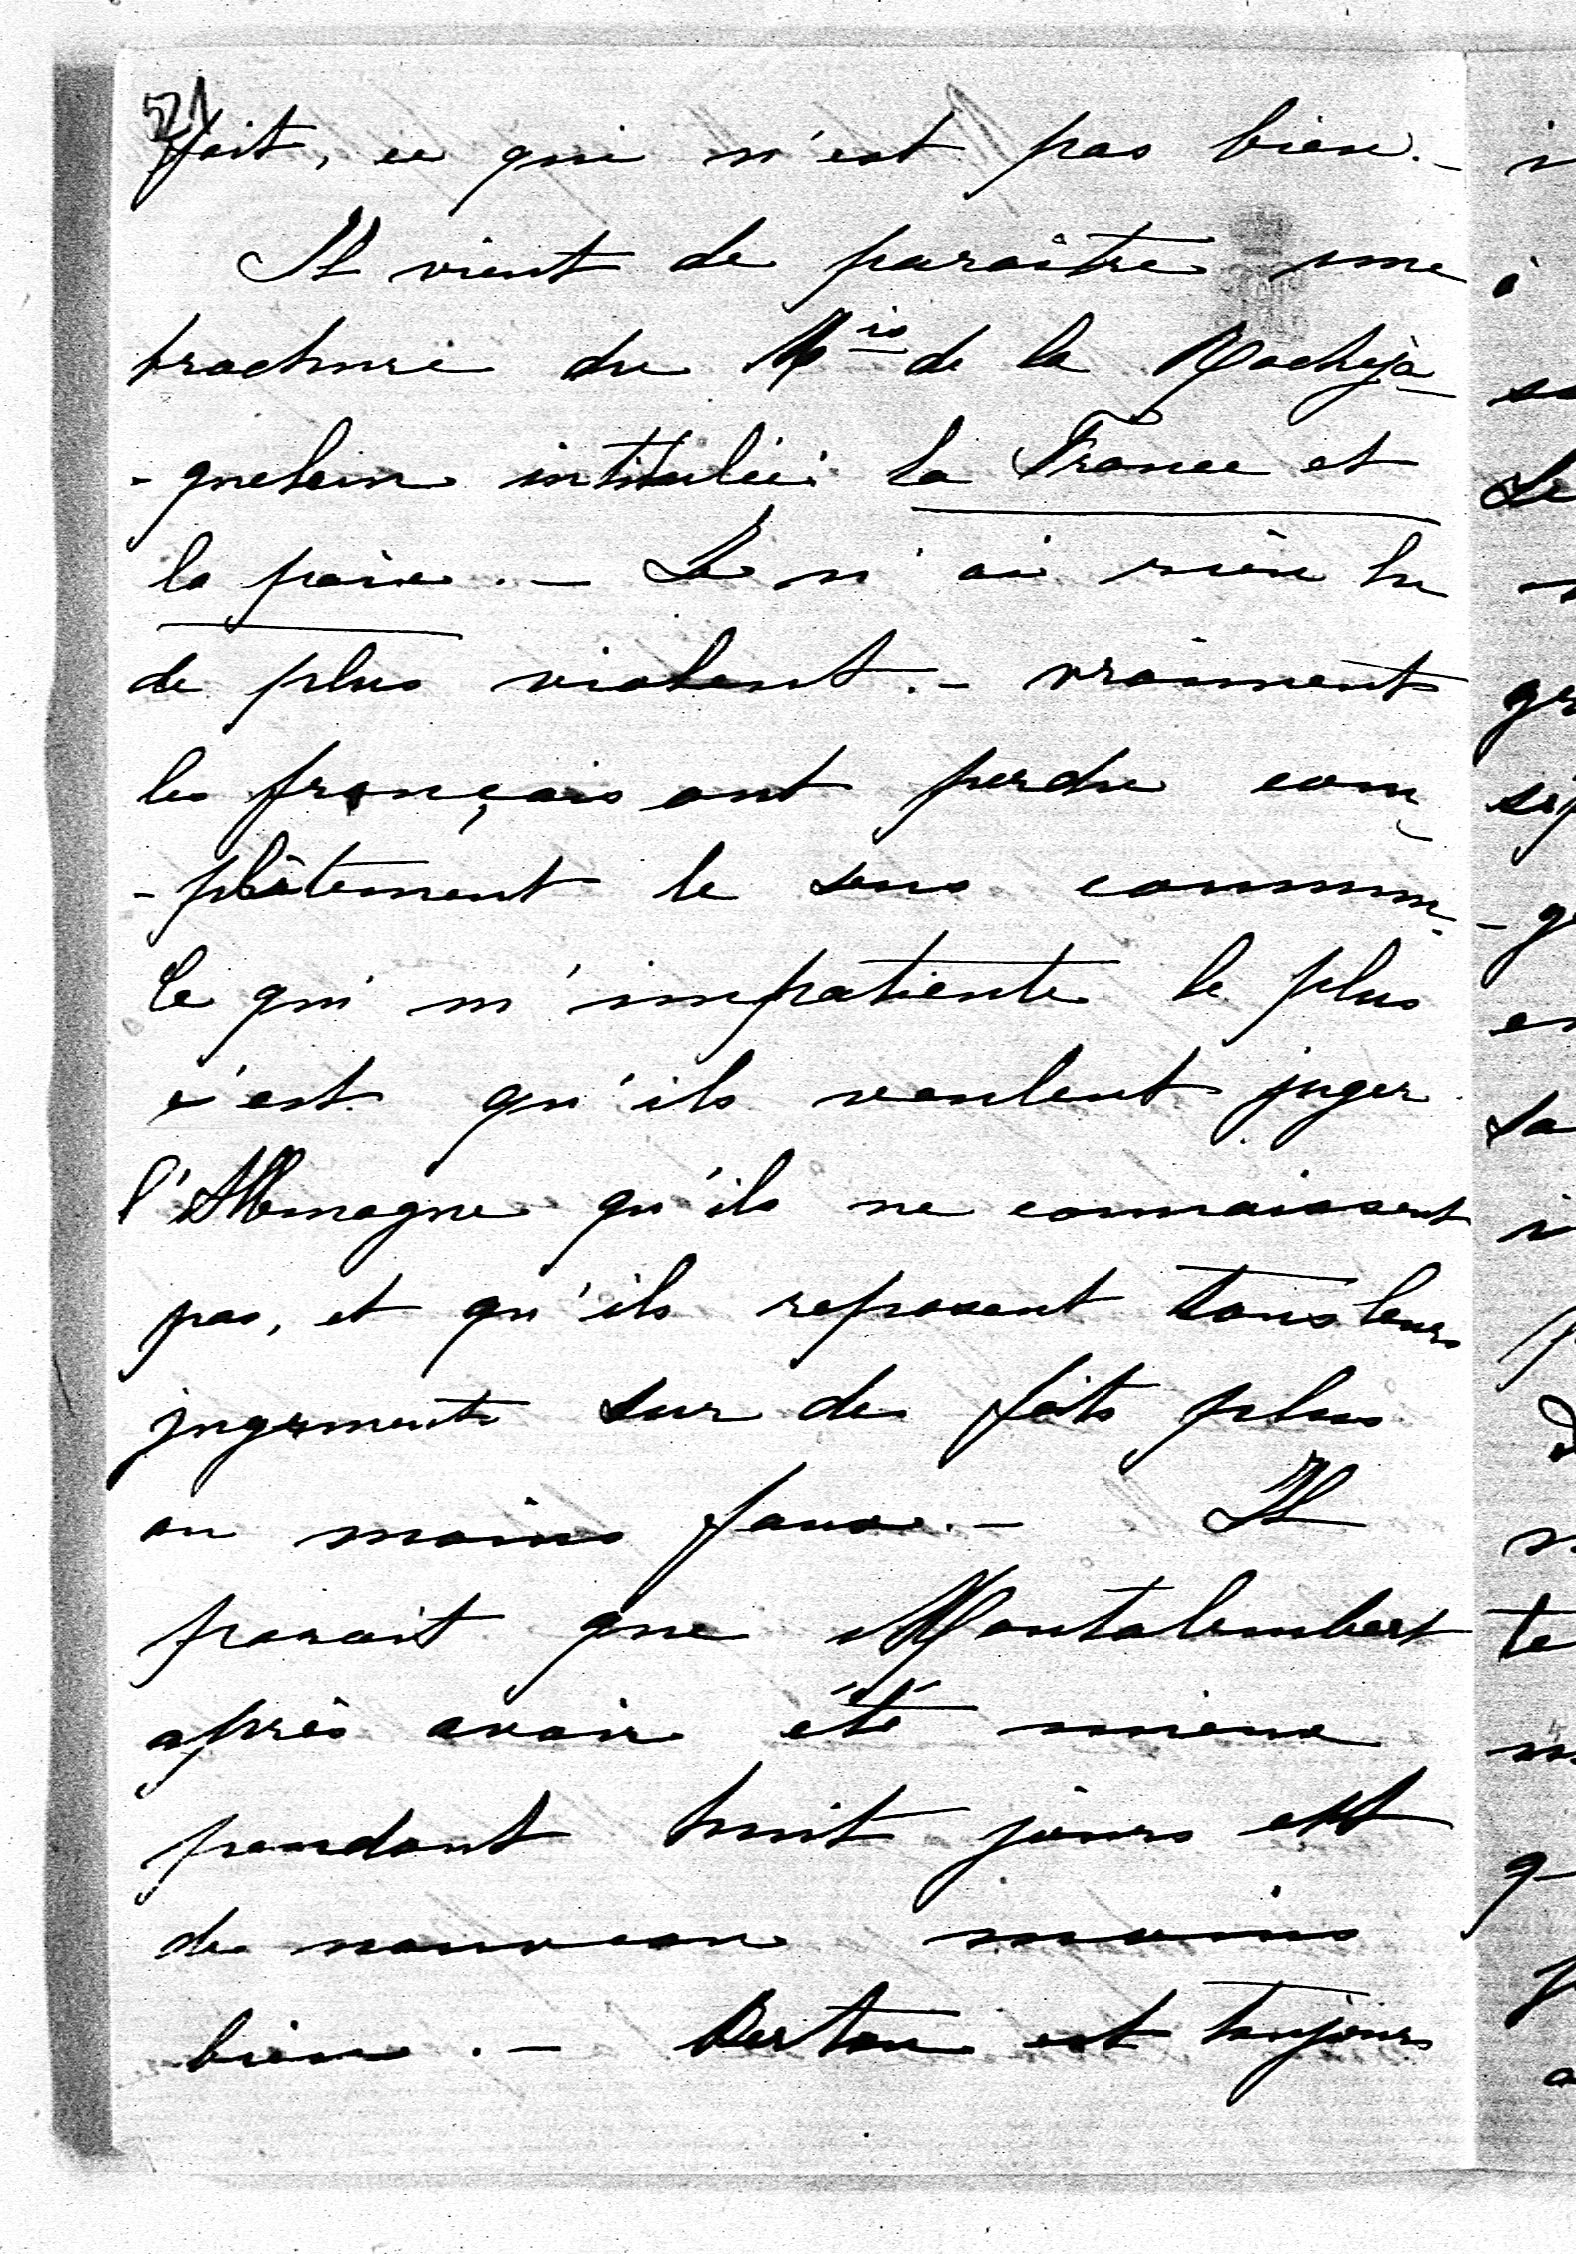 521
fait, ce qui n'est pas bien. –
Il vient de paraître une
brochure du Mis de la Rochejà
-quelein intitulée: la France et
la paix. – Je n'ai rien lu
de plus violent. – vraiment
les français ont perdu com-
-plètement le sens commun.
Ce qui m'impatiente le plus
c'est qu'ils veulent juger
l'Allemagne qu'ils ne connaissent
pas, et qu'ils reposent tous leurs
jugements sur de faits plus
ou moins faux. – Il
parait que Montalembert
après avoir été mieux
pendant huit jours est
de nouveau moins
bien. – est toujours